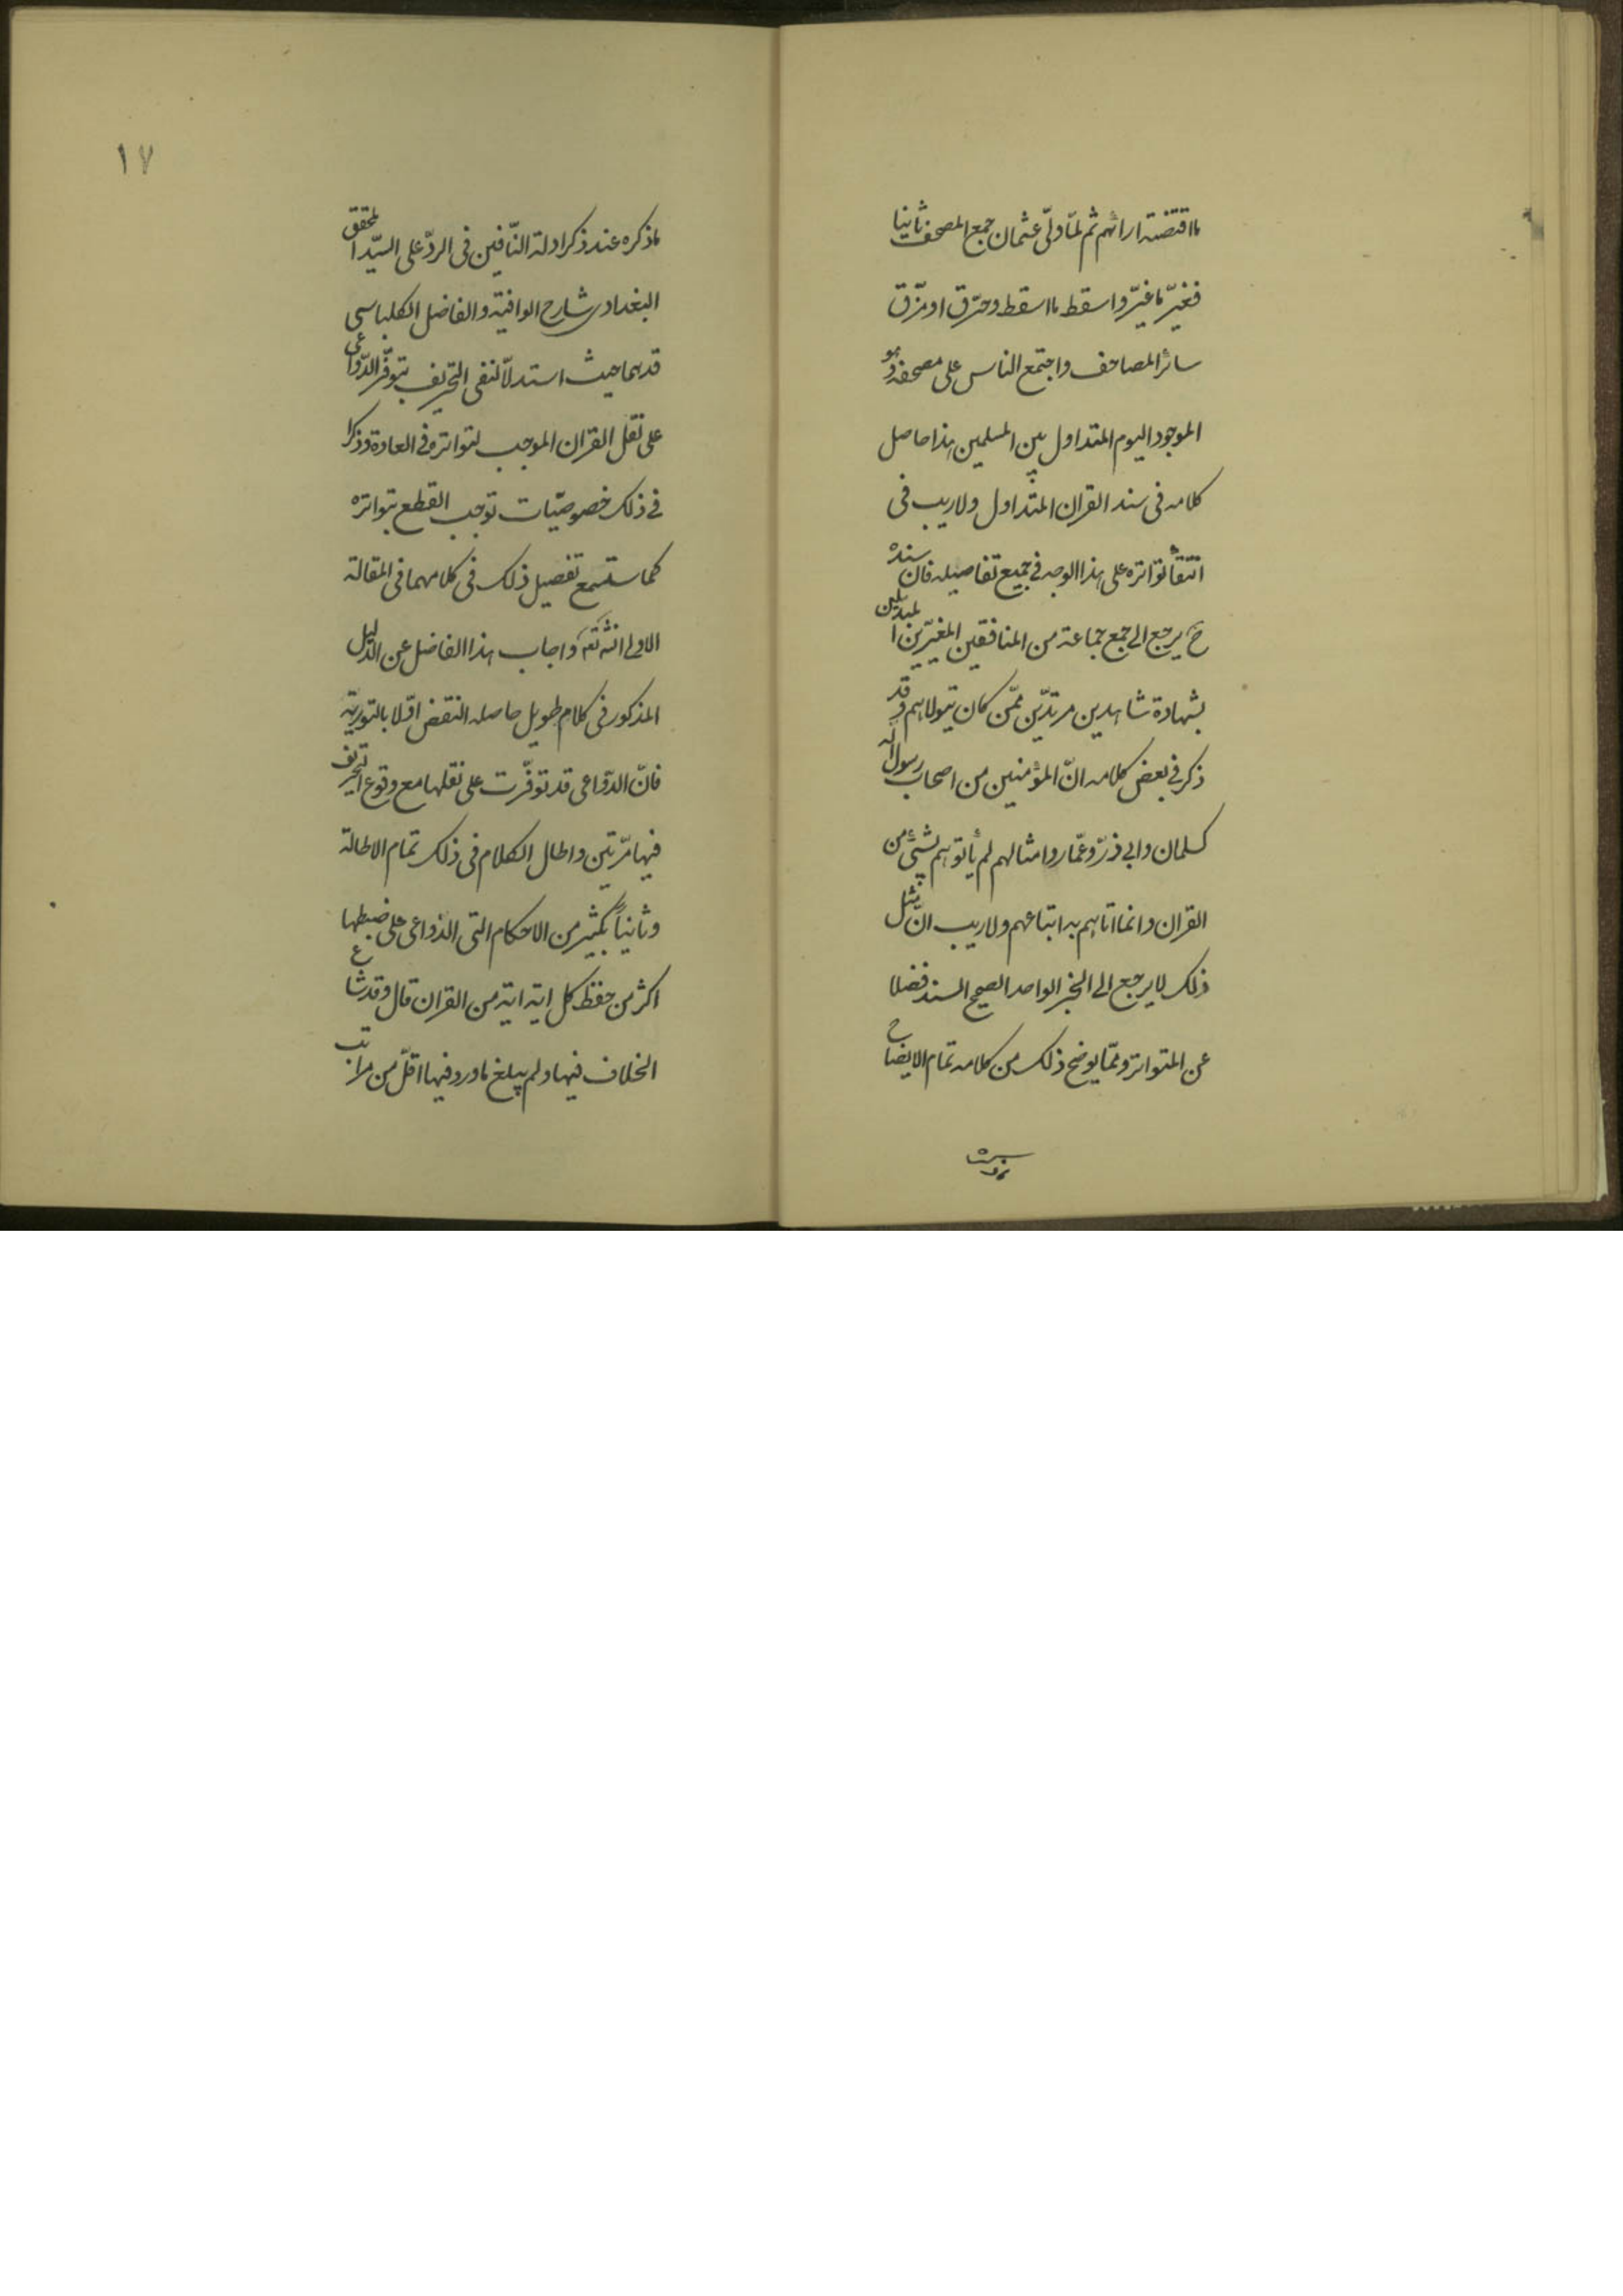 ما اقتضته ارائهم ثم لمّا ولّى عثمان جمع المصحف ثانيا
فغيّر ما غيّر واسقط ما اسقط وحرّق او مزّق
سائر المصاحف واجتمع الناس على مصحفه وهو
الموجود اليوم المتداول بين المسلمين هذا حاصل
كلامه فى سند القران المتداول ولا ريب فى
انتفاء تواتره على هذا الوجه فى جميع تفاصيله فان سنده
ح يرجع الى جمع جماعة من المنافقين المغيّرين المبدلين
بشهادة شاهدين مرتدّين ممّن كان يتولاهم وقد
ذكر فى بعض كلامه انّ المؤمنين من اصحاب رسول الله
كسلمان وابى ذرّ وعمّار وامثالهم لم يأتوهم بشئ من
القران وانما اتاهم به اتباعهم ولا ريب انّ مثل
ذلك لا يرجع الى الخبر الواحد الصحيح السند فضلا
عن المتواتر وممّا يوضح ذلك من كلامه تمام الايضاح
١٧
ما ذكره عند ذكر ادلة النّافين فى الردّ على السيّد المحقق
البغدادى شارح الوافية والفاضل الكلباسى
قدهما حيث استدلّا لنفى التحريف بتوفّر الدّواعى
على نقل القران الموجب لتواتره فى العادة وذكرا
فى ذلك خصوصيّات توجب القطع بتواتره
كما ستسمع تفصيل ذلك فى كلامهما فى المقالة
الاولى انش تعَ واجاب هذا الفاضل عن الدليل
المذكور فى كلام طويل حاصله النقض اوّلا بالتورية
فانّ الدّواعى قد توفّرت على نقلها مع وقوع التحريف
فيها مرّتين واطال الكلام فى ذلك تمام الاطالة
وثانياً بكثير من الاحكام التى الدّواعى على ضبطها
اكثر من حفظ كل اية اية من القران قال وقد شاع
الخلاف فيها ولم يبلغ ما ورد فيها اقلّ من مراتب